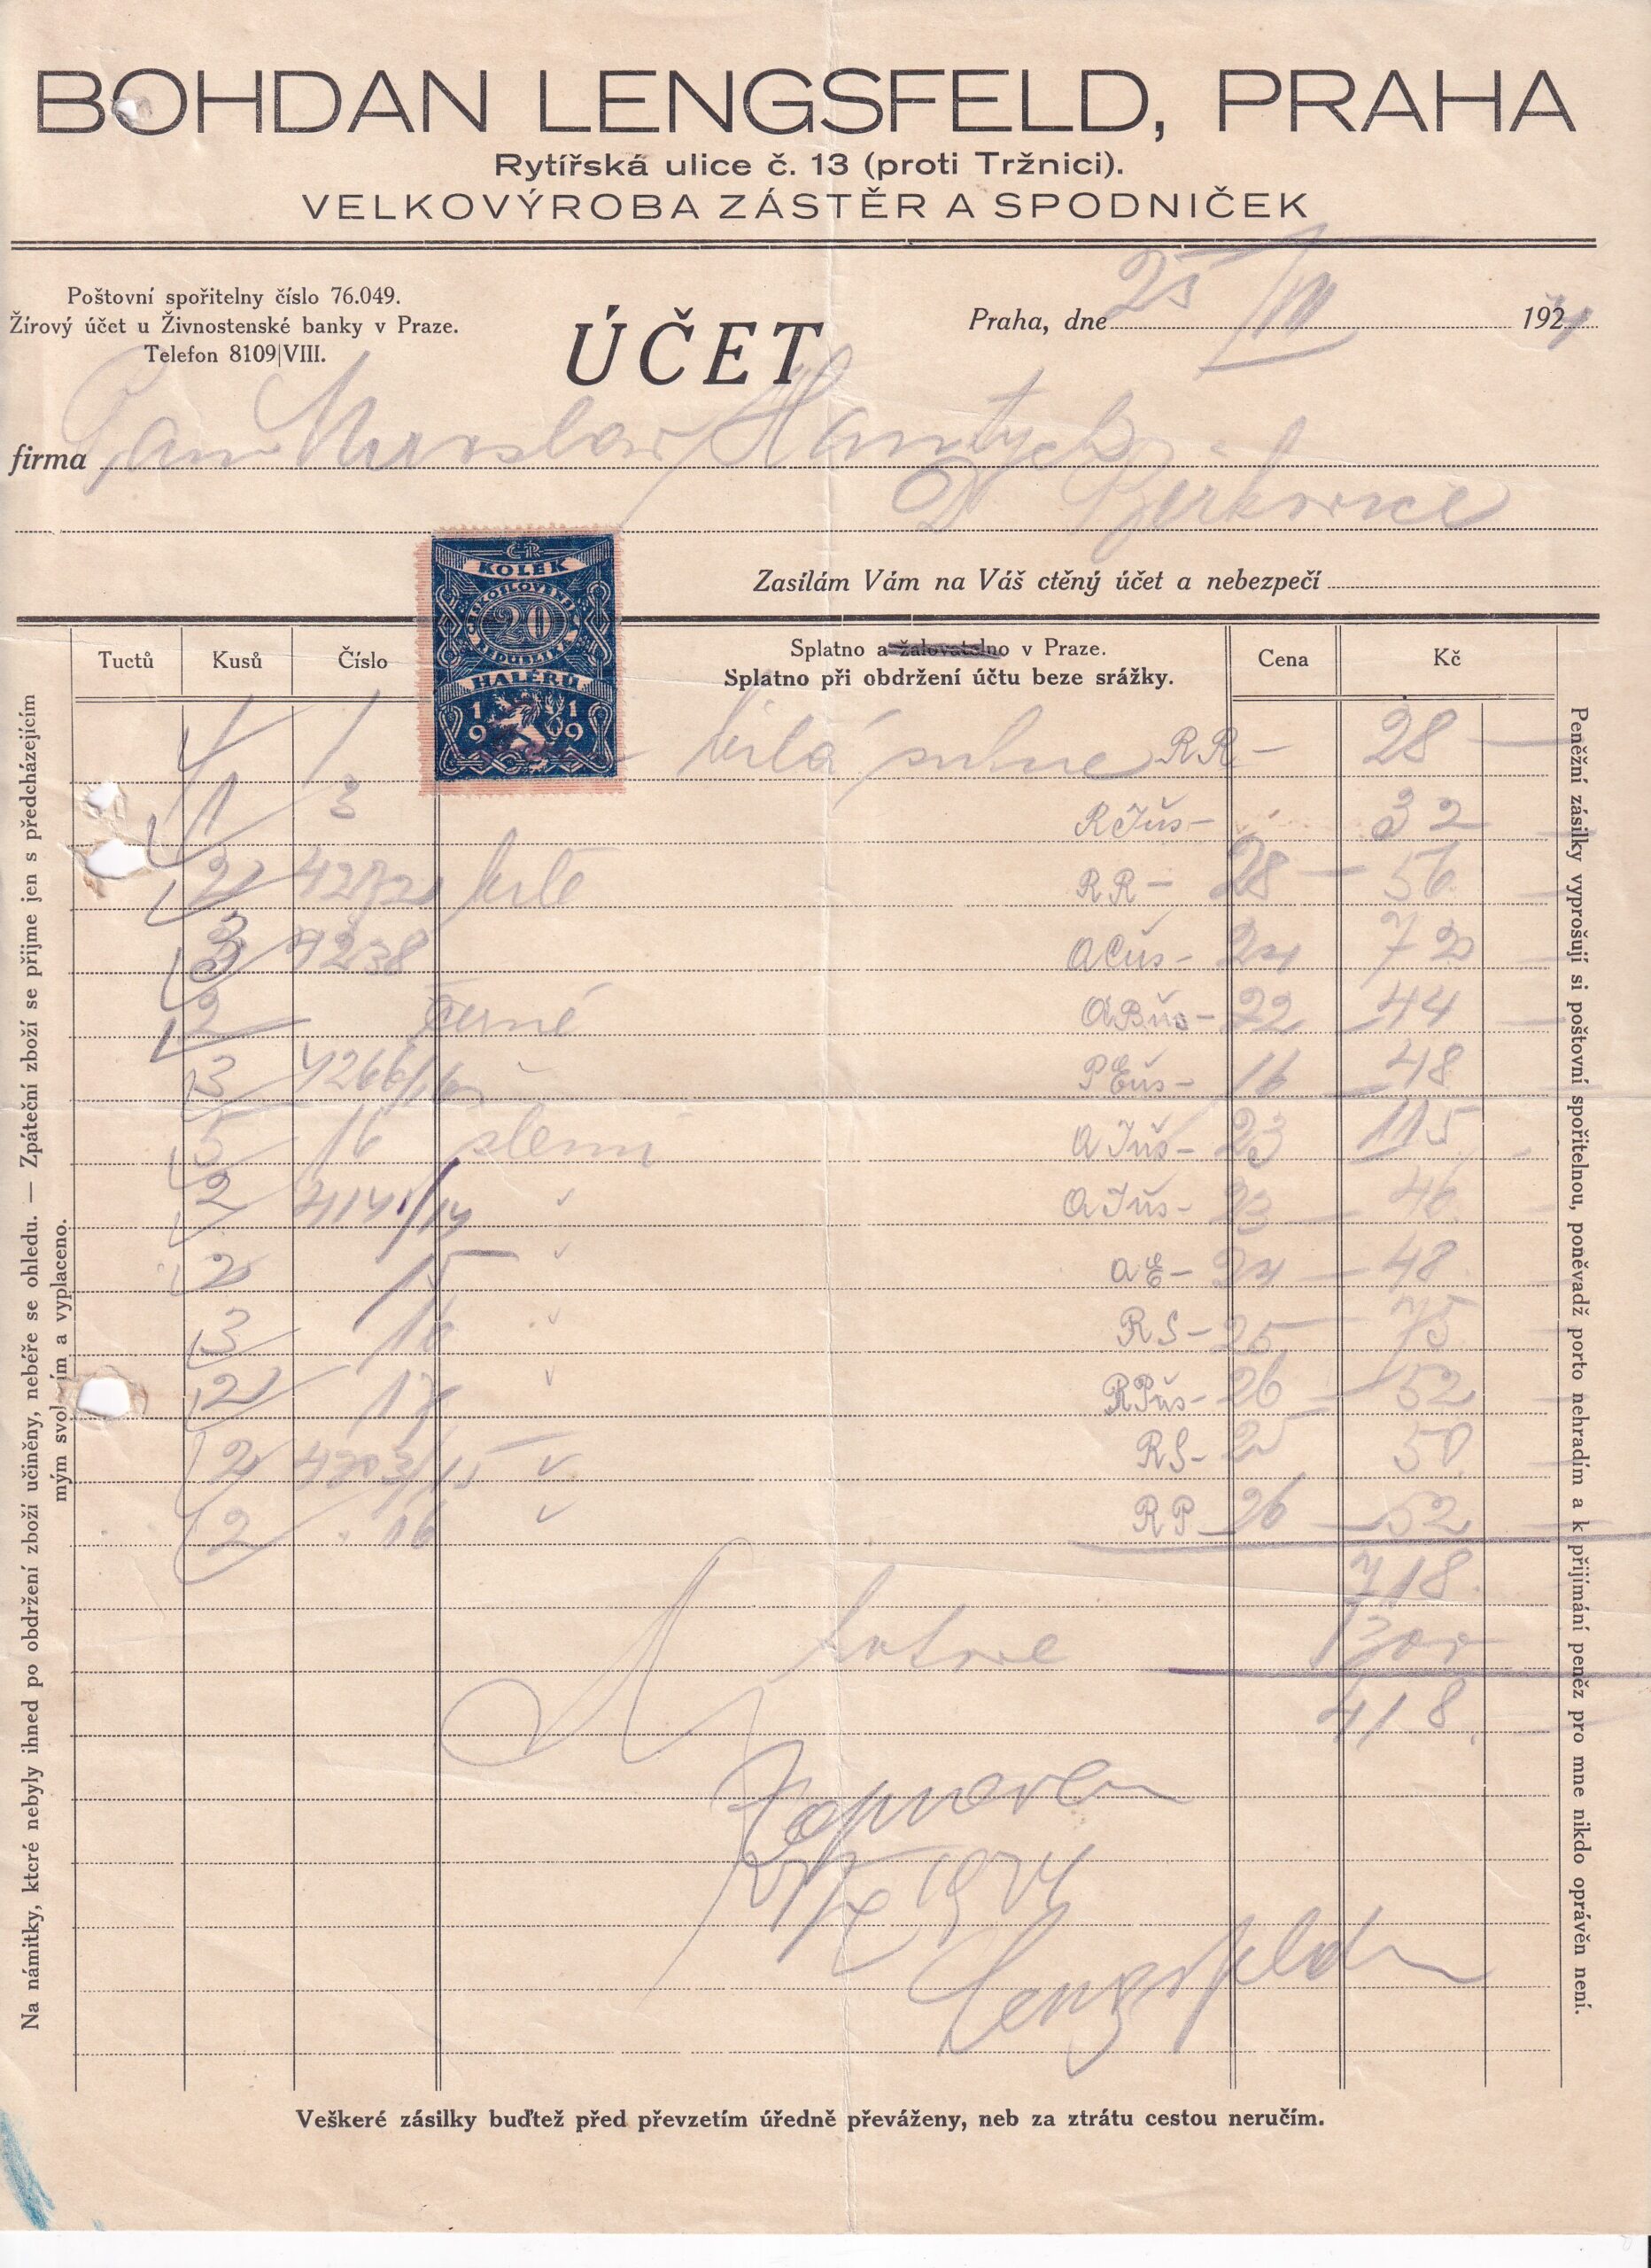 BOHDAN LENGSFELD, PRAHA
Rytířská ulice č. 13 (proti Tržnici).
VELKOVÝROBA ZÁSTĚR A SPODNIČEK
Poštovní spořitelny číslo 76.049.
Žírový účet u Živnostenské banky v Praze.
Telefon 8109|VIII.
ÚČET
Praha, dne 25/VII 1924
firma Pan Miroslav Hantych
D Beřkovice
Zasílám Vám na Váš ctěný účet a nebezpečí
ČR
KOLEK
ČESKOSLOVENSKÁ
20
REPUBLIKA
HALÉŘŮ
1919
Tuctů Kusů Číslo
Splatno a žalovatelno v Praze.
Splatno při obdržení účtu beze srážky.
Cena Kč
1 1 bílá sukne RR – 28
1 3 RIůs – 32
2 4272 bílé RR – 28 – 56
3 4238 ACůs – 24 72
2 černé ABůs – 22 – 44
3 4266/16 PEůs – 16 – 48
5 16 AIůs – 23 115
2 4141/14 AIůs – 23 – 46
2 15 AE – 24 – 48
3 16 RS – 25 75
2 17 RPůs – 26 – 52
2 4203/15 RS – 25 50
2 16 RP – 26 – 52
718
hotově 300
418
Zapraveno
IX 1924
Lengsfeld
Veškeré zásilky buďtež před převzetím úředně převáženy, neb za ztrátu cestou neručím.
Na námitky, které nebyly ihned po obdržení zboží učiněny, nebéře se ohledu. — Zpáteční zboží se přijme jen s předcházejícím
mým svolením a vyplaceno.
Peněžní zásilky vyprošuji si poštovní spořitelnou, poněvadž porto nehradím a k přijímání peněz pro mne nikdo oprávěn není.